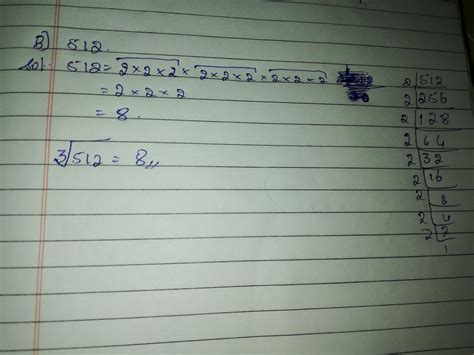 B] 512.
Sol. 512 = 2×2×2 × 2×2×2 × 2×2×2
= 2×2×2
= 8.
3√512 = 8,,
2 512
2 256
2 128
2 64
2 32
2 16
2 8
2 4
2 2
1